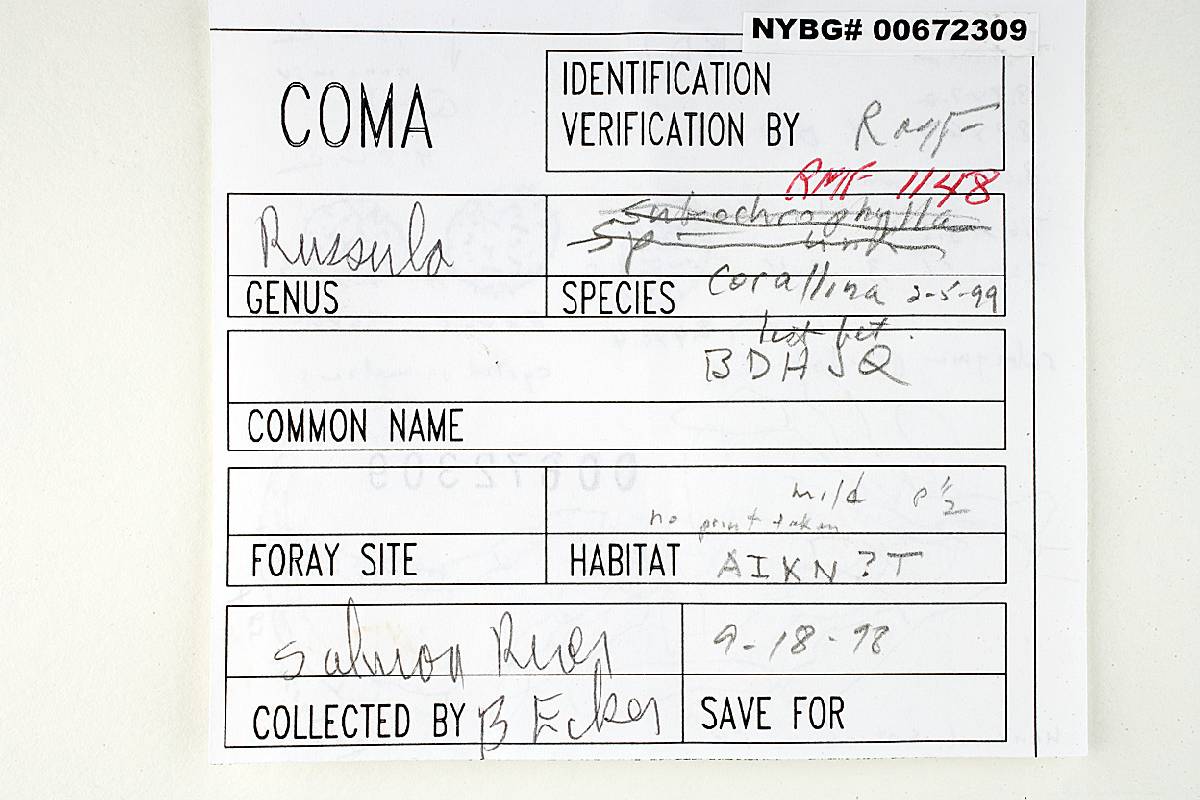 NYBG# 00672309
COMA
IDENTIFICATION
VERIFICATION BY
RMF 1148
Russula
Subochrophylla
Sp unk
GENUS
SPECIES Corallina 2-5-99
best bet.
BDHJQ
COMMON NAME
00672309
mild
no print taken
FORAY SITE
HABITAT AIKN?T
Salmon River
9-18-98
COLLECTED BY B Ecker
SAVE FOR